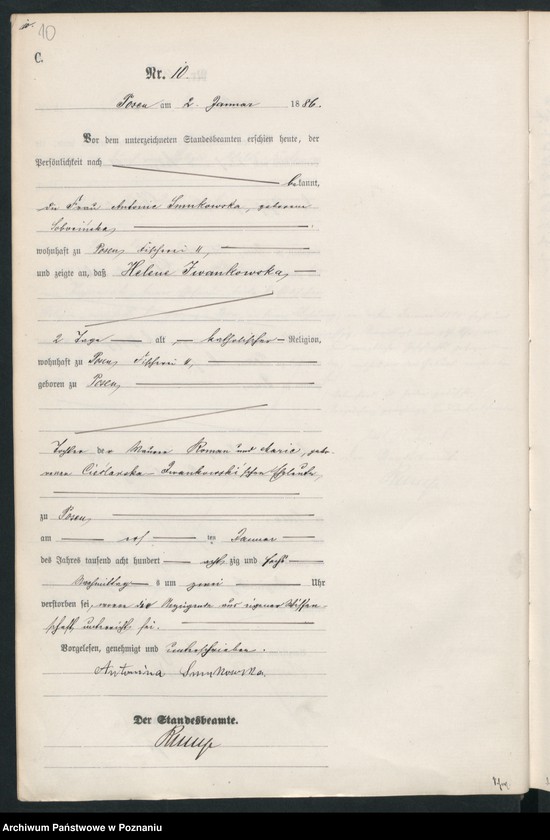 10
C.
Nr. 10.
Posen am 2. Januar 1886.
Vor dem unterzeichneten Standesbeamten erschien heute, der
Persönlichkeit nach
bekannt,
die Frau Antonie geborene
wohnhaft zu Posen, Fischerei 11,
und zeigte an, daß Helene Iwankowska,
2 Tage alt, katholischer Religion,
wohnhaft zu Posen, Fischerei 11,
geboren zu Posen,
Tochter der Maurer Roman und Marie, gebo-
renen Cieślarska Iwankowski'schen Eheleute,
zu Posen,
am ten Januar
des Jahres tausend acht hundert acht zig und sechs
Nachmittags um zwei Uhr
verstorben sei, wovon die Anzeigende aus eigener Wissen-
schaft unterrichtet sei.
Vorgelesen, genehmigt und unterschrieben.
Antonina
Der Standesbeamte.
Archiwum Państwowe w Poznaniu